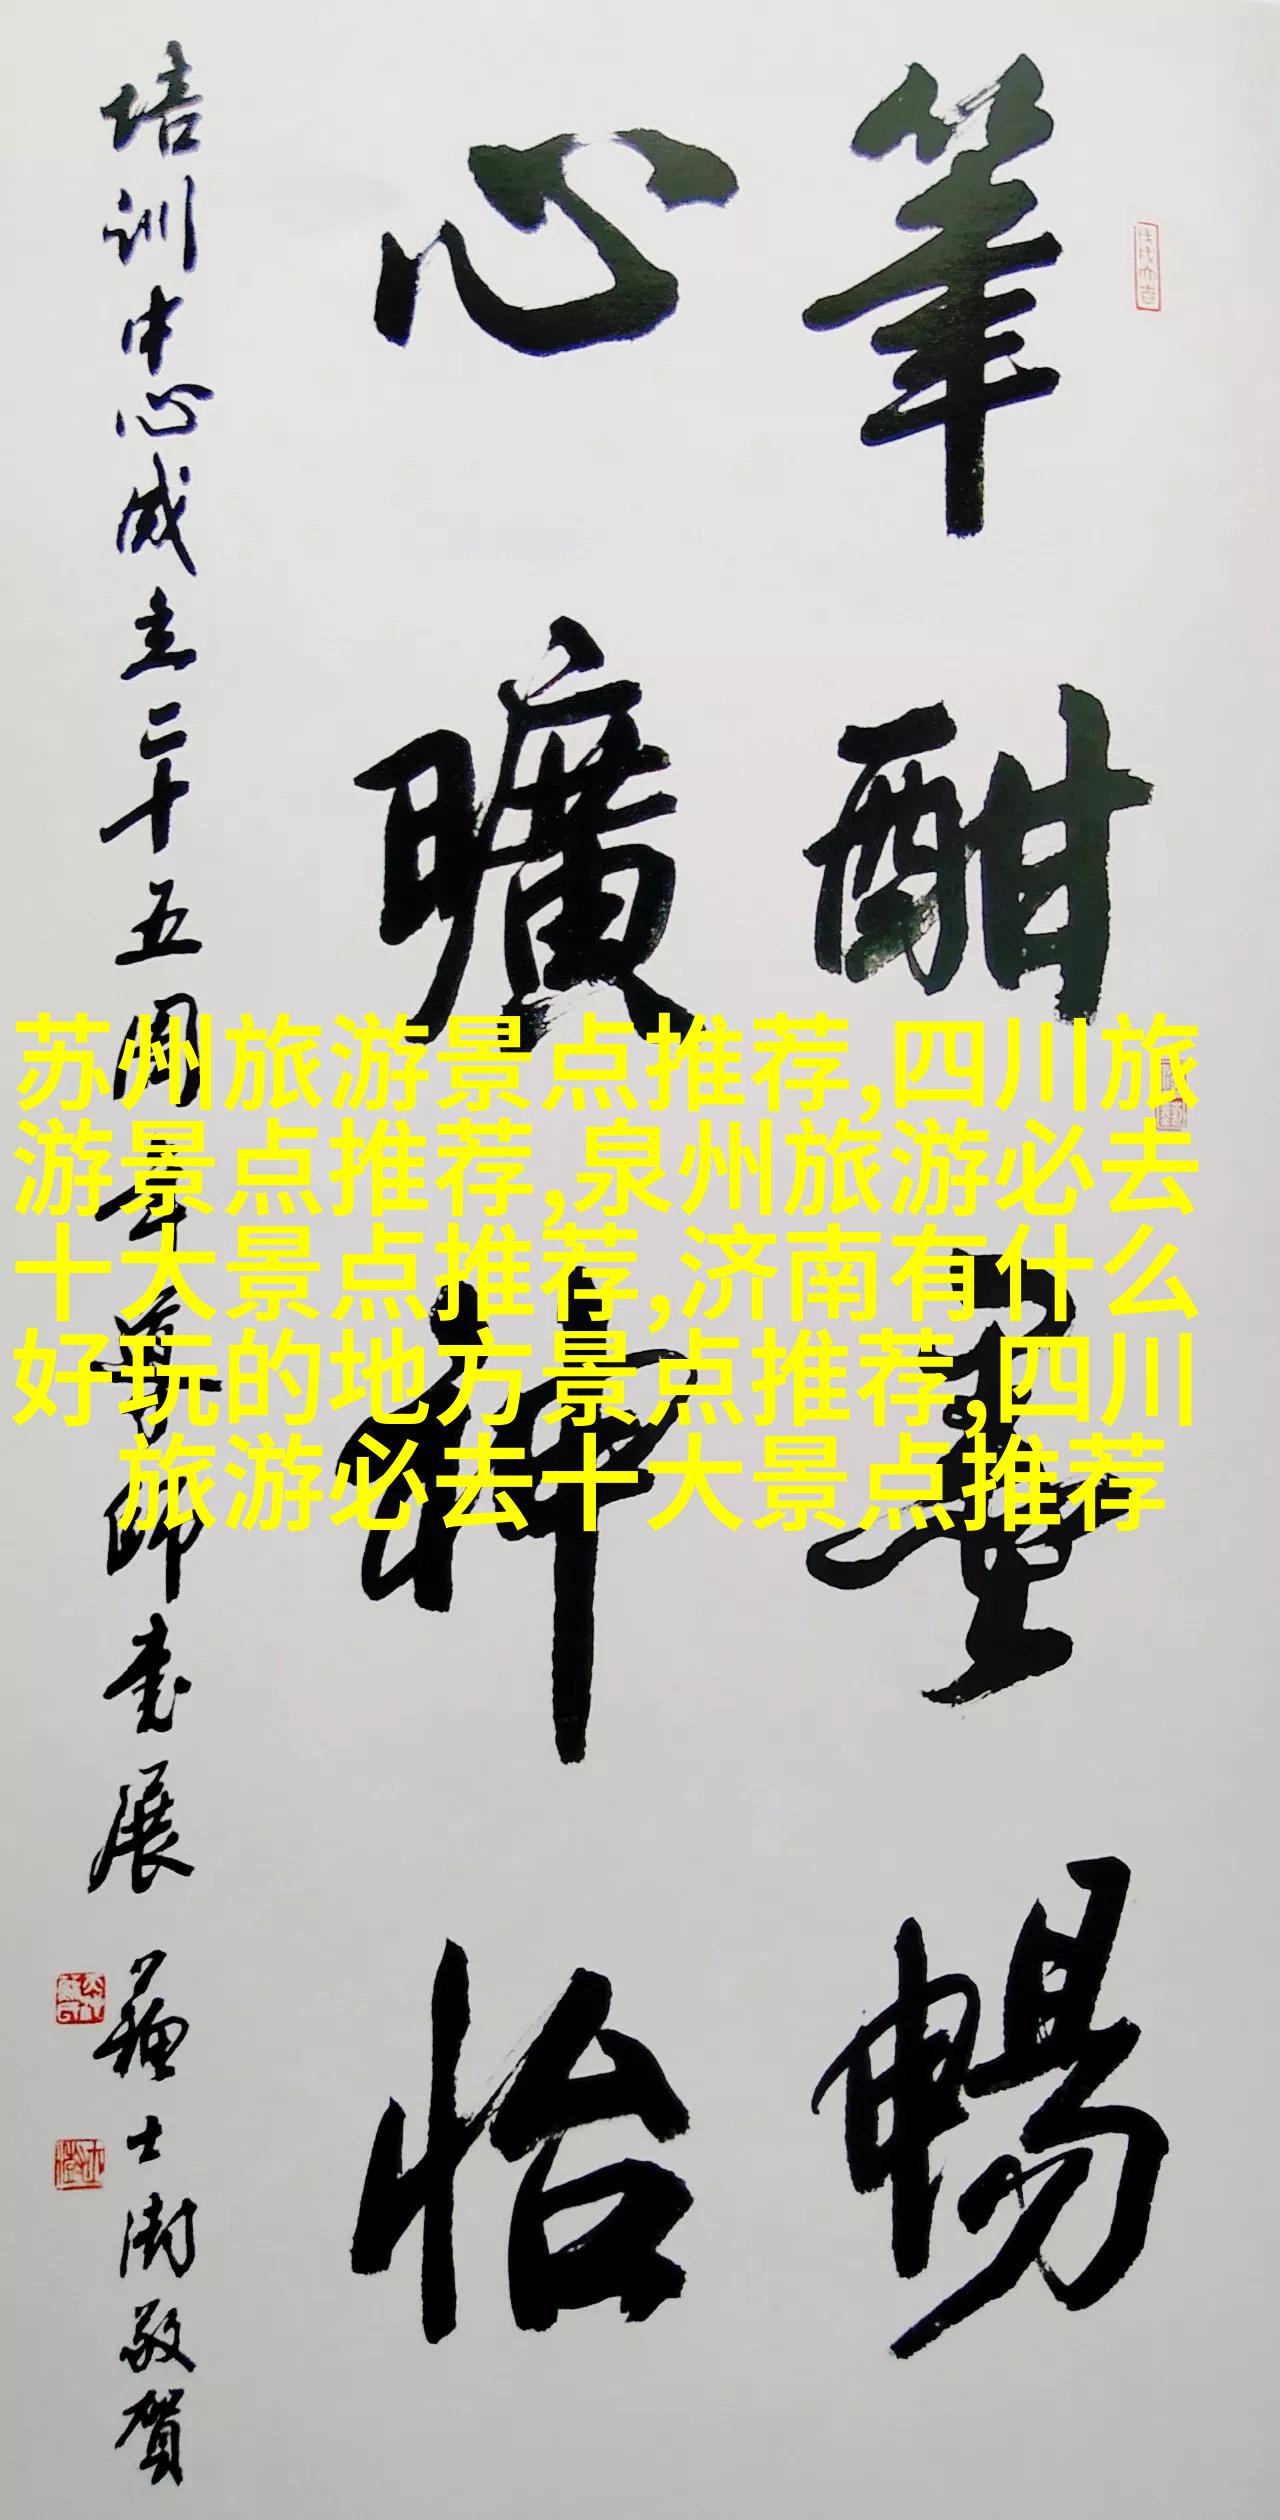 筆酣墨暢
心曠神怡
培訓中心成立二十五周年導師書展
蘇士澍敬賀
苏州旅游景点推荐,四川旅
游景点推荐,泉州旅游必去
十大景点推荐,济南有什么
好玩的地方景点推荐,四川
旅游必去十大景点推荐